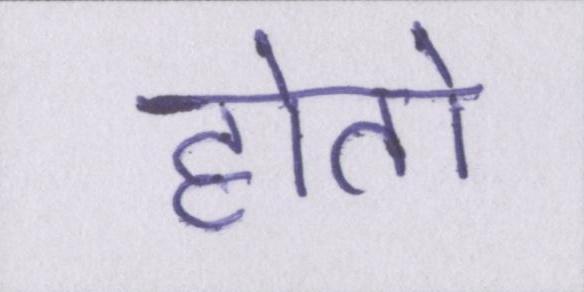 होतो